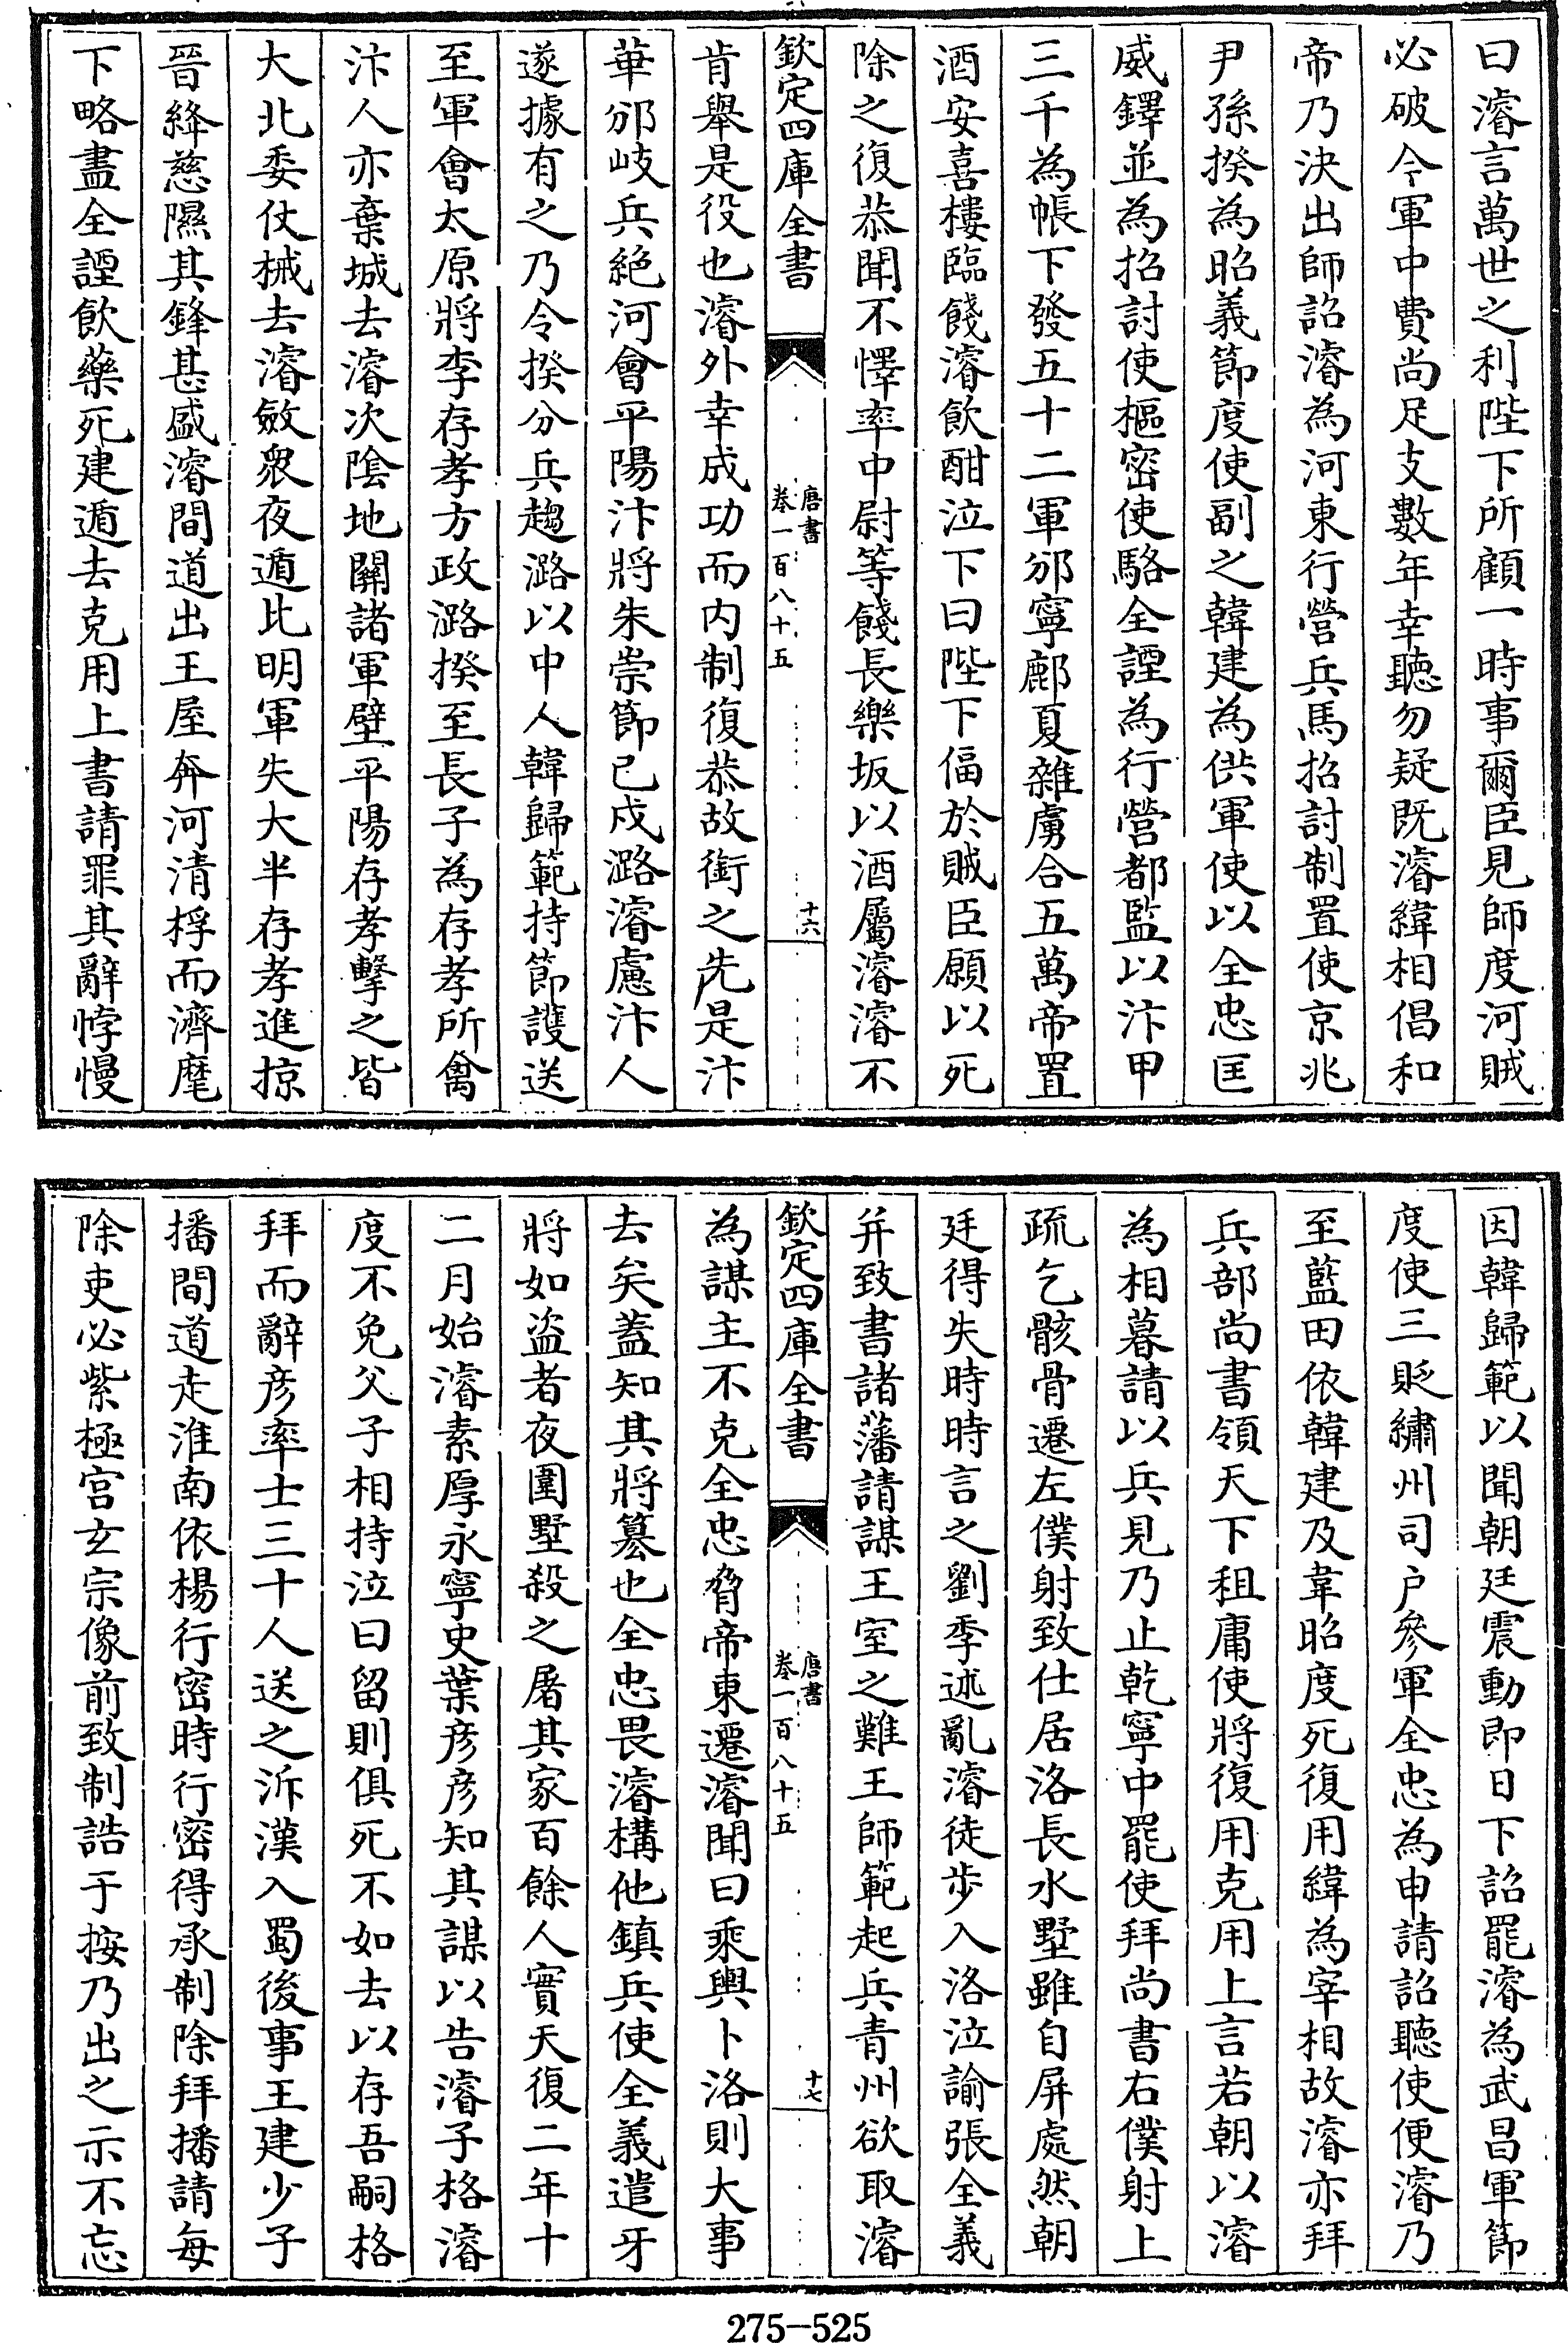 曰濬言萬世之利陛下所顧一時事爾臣見師度河賊
必破今軍中費尚足支數年幸聽勿疑既濬緯相倡和
帝乃決出師詔濬為河東行營兵馬招討制置使京兆
尹孫揆為昭義節度使副之韓建為供軍使以全忠匡
威鐸並為招討使樞密使駱全諲為行營都監以汴甲
三千為帳下發五十二軍邠寧鄜夏雜虜合五萬帝置
酒安喜樓臨餞濬飲酣泣下曰陛下偪於賊臣願以死
除之復恭聞不懌率中尉等餞長樂坂以酒屬濬濬不
欽定四庫全書
唐書
卷一百八十五
十六
肯舉是役也濬外幸成功而内制復恭故銜之先是汴
華邠岐兵絶河會平陽汴將朱崇節已戍潞濬慮汴人
遂據有之乃令揆分兵趨潞以中人韓歸範持節護送
至軍會太原將李存孝方政潞揆至長子為存孝所禽
汴人亦棄城去濬次陰地關諸軍壁平陽存孝擊之皆
大北委仗械去濬斂衆夜遁比明軍失大半存孝進掠
晉絳慈隰其鋒甚盛濬間道出王屋奔河清桴而濟麾
下略盡全諲飲藥死建遁去克用上書請罪其辭悖慢
因韓歸範以聞朝廷震動即日下詔罷濬為武昌軍節
度使三貶繡州司户參軍全忠為申請詔聽使便濬乃
至藍田依韓建及韋昭度死復用緯為宰相故濬亦拜
兵部尚書領天下租庸使將復用克用上言若朝以濬
為相暮請以兵見乃止乾寧中罷使拜尚書右僕射上
疏乞骸骨遷左僕射致仕居洛長水墅雖自屏處然朝
廷得失時時言之劉季述亂濬徒步入洛泣諭張全義
并致書諸藩請謀王室之難王師範起兵青州欲取濬
欽定四庫全書
唐書
卷一百八十五
十七
為謀主不克全忠脅帝東遷濬聞曰乘輿卜洛則大事
去矣蓋知其將簒也全忠畏濬構他鎮兵使全義遣牙
將如盜者夜圍墅殺之屠其家百餘人實天復二年十
二月始濬素厚永寧史葉彦彦知其謀以告濬子格濬
度不免父子相持泣曰留則俱死不如去以存吾嗣格
拜而辭彦率士三十人送之泝漢入蜀後事王建少子
播間道走淮南依楊行密時行密得承制除拜播請每
除吏必紫極宫玄宗像前致制誥于按乃出之示不忘
275-525